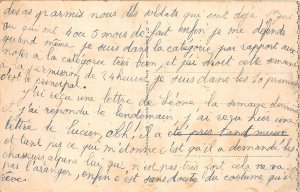 des as parmis nous des soldats qui sont déjà
qui ont 4 ou 5 mois de fait enfin je me défends
quand même je suis dans la catégorie par rapport aux
notes a la catégorie très bien, et j'ai droit cette semaine
a la permission de 24 heures je suis dans les 20 premiers
c'est le principal.
j'ai reçu une lettre de Léone, la semaine dernière
et j'ai répondu le lendemain, j'ai reçu hier une
lettre de lucien Oh! il a été pris tant mieux
et tant pis ce qui m'étonne c'est qu'il a demandé les
chasseurs alpins lui qui n'est pas très fort cela ne va
pas l'arranger, enfin c'est sans doute du costume qu'il
rêve.